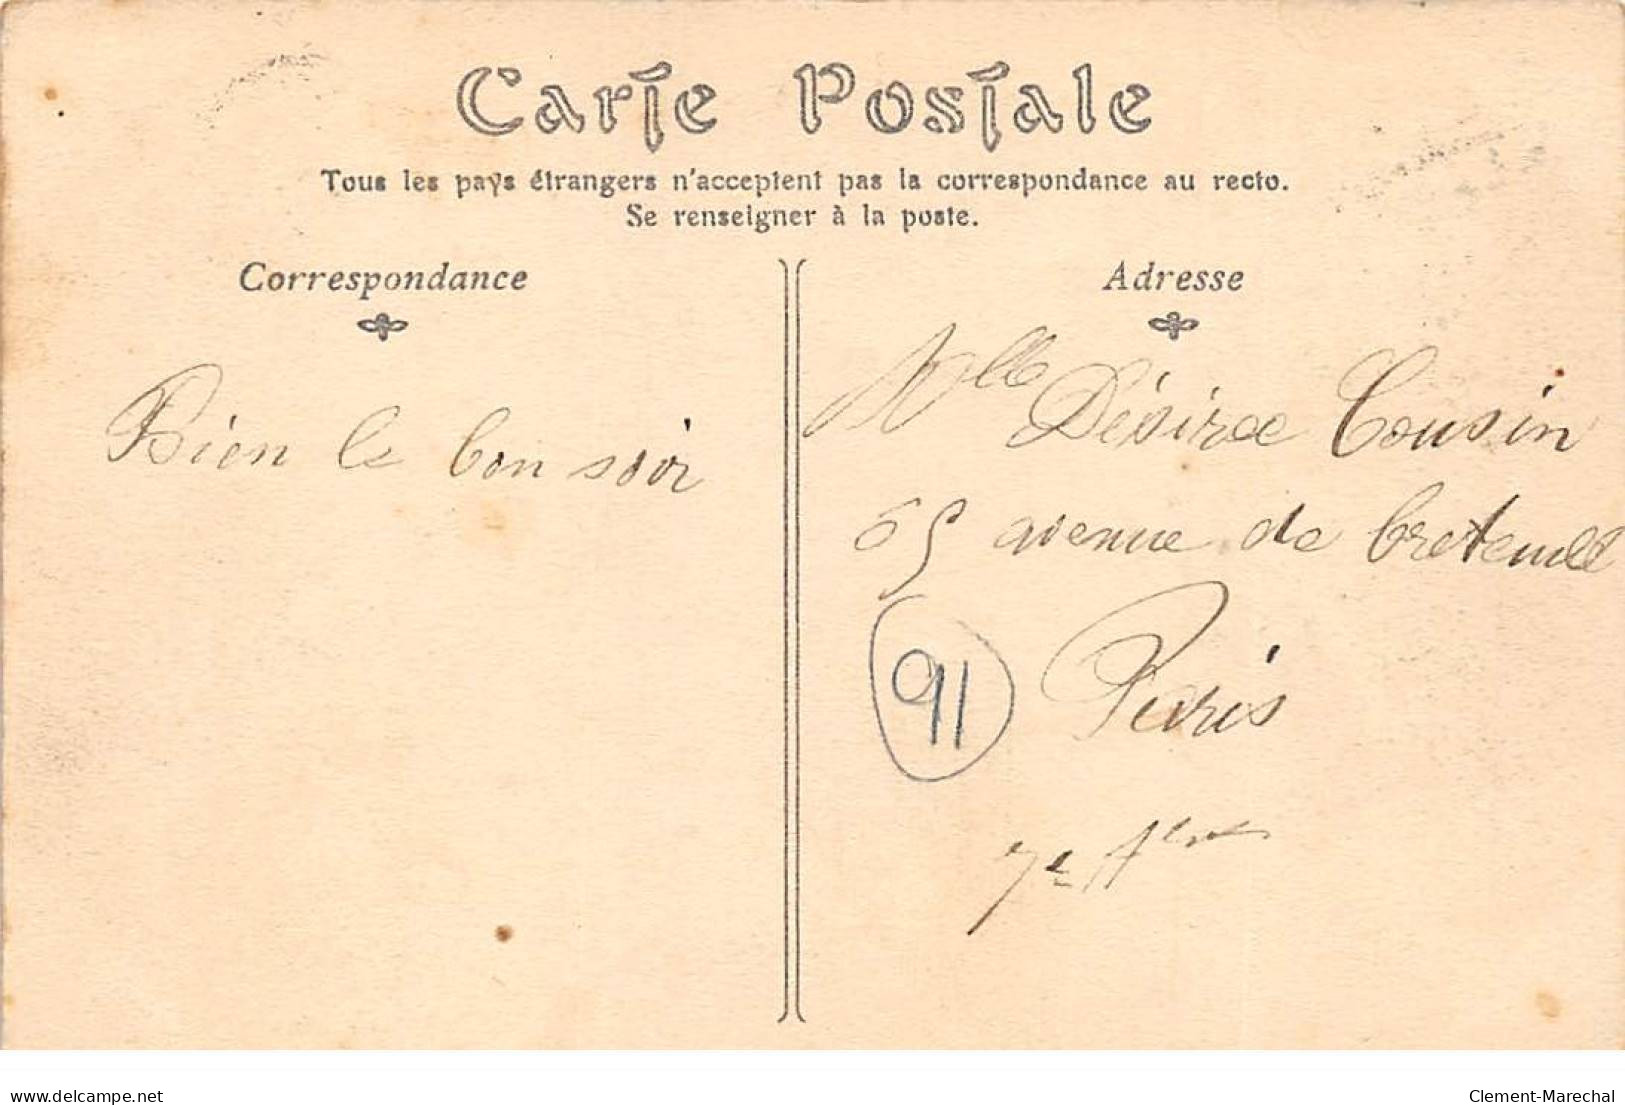 Carte Postale
Tous les pays étrangers n'acceptent pas la correspondance au recto.
Se renseigner à la poste.
Correspondance
Bien le bon soir
Adresse
Mlle Désirée Cousin
65 avenue de breteuil
Paris
7e
91
delcampe.net
Clement-Marechal